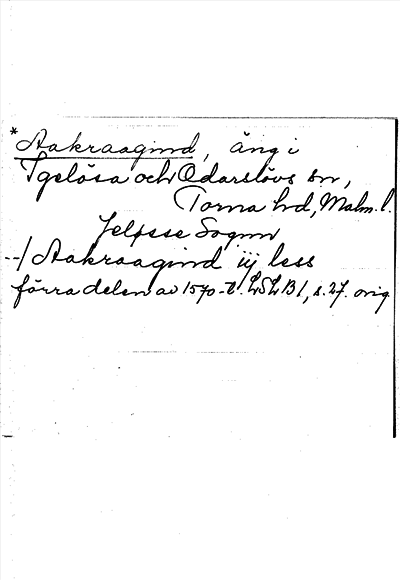 *Aakraagind, äng i
Igelösa och Odarslövs sn,
Torna hd, Malm. l.
Jeløsse Sognn
--/ Aakraagind iij less
förra delen av 1570-t. LSLB 1, s. 27. orig